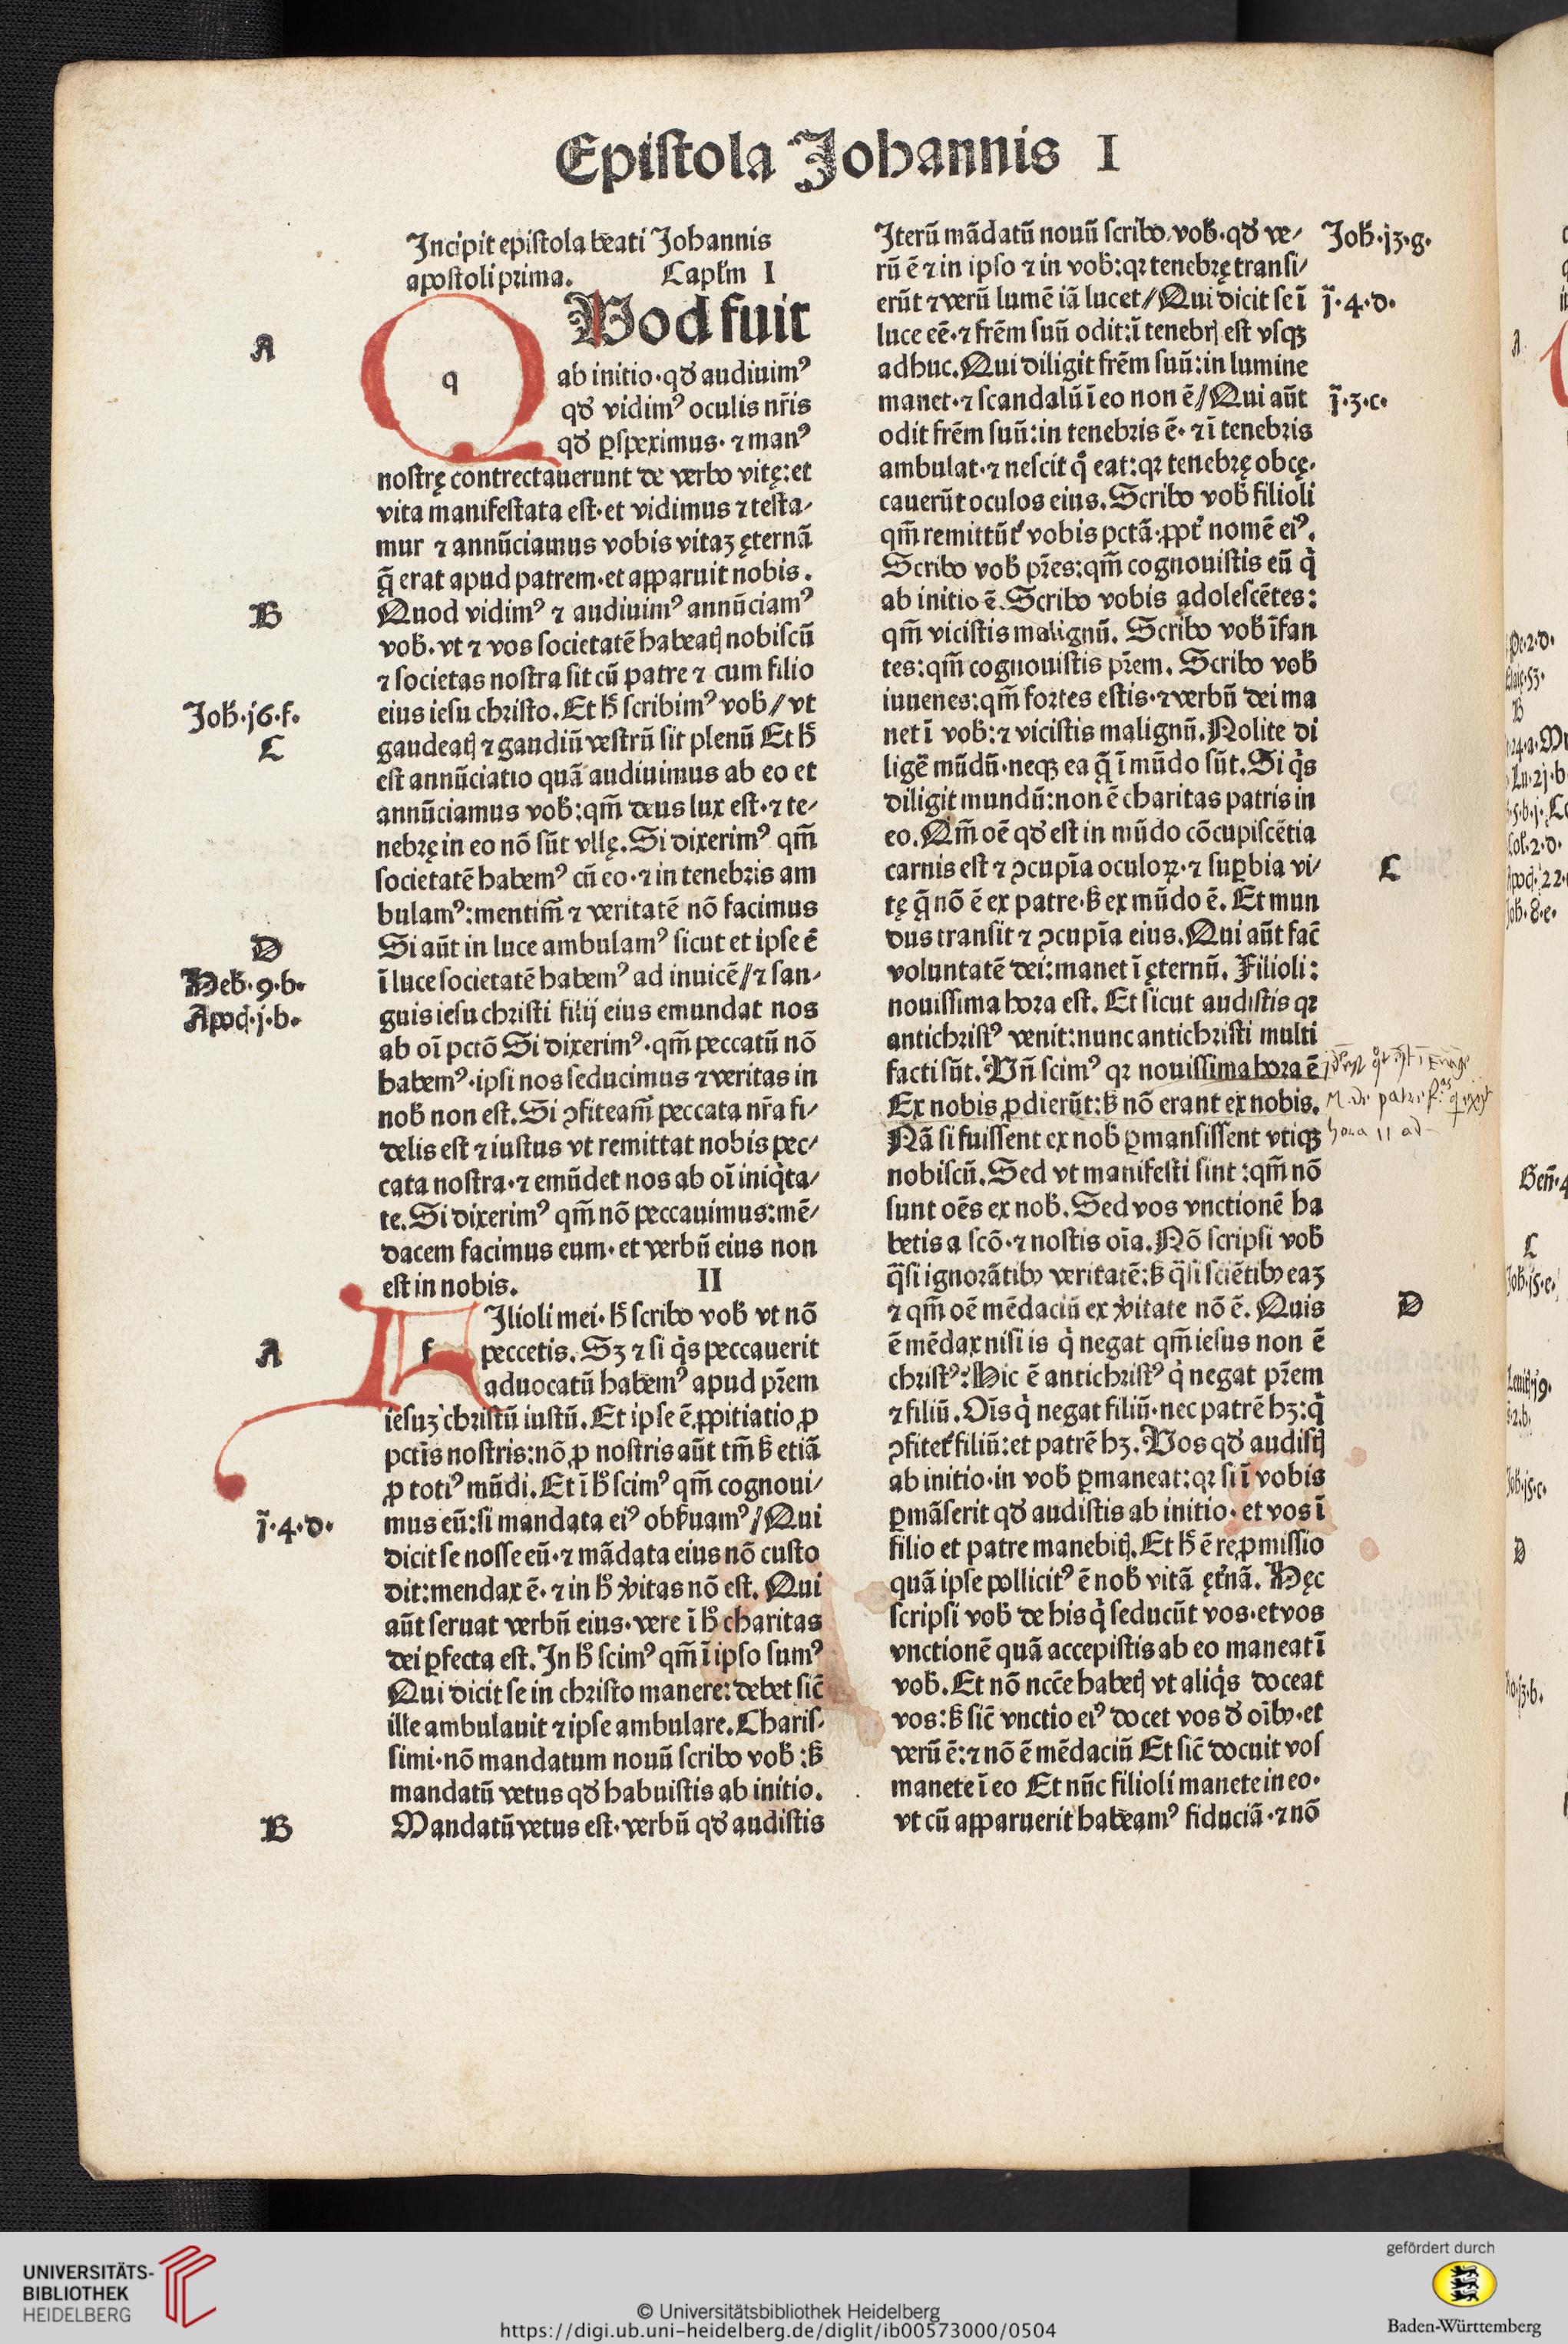 Epistola Johannis I
Incipit epistola beati Johannis
apostoli prima. Caplm̄ I
A
QVod fuit
q
ab initio·qđ audiuimꝰ
qđ vidimꝰ oculis nr̄is
qđ ꝑspeximus·⁊ manꝰ
nostrę contrectauerunt de verbo vitę:et
vita manifestata est·et vidimus ⁊ testa⸗
mur ⁊ annūciamus vobis vitaꝫ ęternā
q̄ erat apud patrem·et apparuit nobis.
B
Quod vidimꝰ ⁊ audiuimꝰ annūciamꝰ
vob̄·vt ⁊ vos societatē habeatꝭ nobiscū
⁊ societas nostra sit cū patre ⁊ cum filio
Joh̄·j6·f·
eius iesu christo.Et h̄ scribimꝰ vob̄/vt
C
gaudeatꝭ ⁊ gaudiū vestrū sit plenū Et h̄
est annūciatio quā audiuimus ab eo et
annūciamus vob̄:qm̄ deus lux est·⁊ te⸗
nebrę in eo nō sūt vllę.Si dixerimꝰ qm̄
societatē habemꝰ cū eo·⁊ in tenebris am
bulamꝰ:mentim̄ ⁊ veritatē nō facimus
D
Si aūt in luce ambulamꝰ sicut et ipse ē
Heb̄·9·b·
ī luce societatē habemꝰ ad inuicē/⁊ san⸗
Apoc̄·j·b·
guis iesu christi filij eius emundat nos
ab oī pctō Si dixerimꝰ·qm̄ peccatū nō
habemꝰ·ipsi nos seducimus ⁊ veritas in
nob̄ non est.Si ꝯfiteam̄ peccata nr̄a fi⸗
delis est ⁊ iustus vt remittat nobis pec⸗
cata nostra·⁊ emūdet nos ab oī iniqͥta⸗
te.Si dixerimꝰ qm̄ nō peccauimus:mē⸗
dacem facimus eum·et verbū eius non
est in nobis. II
FIlioli mei·h̄ scribo vob̄ vt nō
f
A
peccetis.Sꝫ ⁊ si qͥs peccauerit
aduocatū habemꝰ apud pr̄em
iesuꝫ christū iustū.Et ipse ē ꝓpitiatio ꝓ
pctīs nostris:nō ꝓ nostris aūt tm̄ ꝫ etiā
ꝓ totiꝰ mūdi.Et ī hͦ scimꝰ qm̄ cognoui⸗
j̄·4·d·
mus eū:si mandata eiꝰ obẜuamꝰ/Qui
dicit se nosse eū·⁊ mādata eius nō custo
dit:mendax ē·⁊ in hͦ v̓itas nō est. Qui
aūt seruat verbū eius·vere ī hͦ charitas
dei ꝑfecta est.In hͦ scimꝰ qm̄ ī ipso sumꝰ
Qui dicit se in christo manere:debet sic̄
ille ambulauit ⁊ ipse ambulare.Charis⸗
simi·nō mandatum nouū scribo vob̄:ẜ
mandatū vetus qđ habuistis ab initio.
B
Mandatū vetus est·verbū qđ audistis
Iterū mādatū nouū scribo vob̄·qđ ve⸗
Joh̄·jꝫ·g·
rū ē ⁊ in ipso ⁊ in vob̄:qꝛ tenebrę transi⸗
erūt ⁊ verū lumē iā lucet/Qui dicit se ī
j̄·4·d·
luce eē·⁊ fr̄em suū odit:ī tenebrꝭ est vsqꝫ
adhuc.Qui diligit fr̄em suū:in lumine
manet·⁊ scandalū ī eo non ē/Qui aūt
j̄·3·c·
odit fr̄em suū:in tenebris ē·⁊ ī tenebris
ambulat·⁊ nescit qͦ eat:qꝛ tenebrę obcę⸗
cauerūt oculos eius.Scribo vob̄ filioli
qm̄ remittūtᷣ vobis pctā·ꝓptᷣ nomē eiꝰ.
Scribo vob̄ pr̄es:qm̄ cognouistis eū qͥ
ab initio ē.Scribo vobis adolescētes:
qm̄ vicistis malignū. Scribo vob̄ īfan
tes:qm̄ cognouistis pr̄em. Scribo vob̄
iuuenes:qm̄ fortes estis·⁊ verbū dei ma
net ī vob̄:⁊ vicistis malignū.Nolite di
ligē mūdū·neqꝫ ea q̄ ī mūdo sūt.Si qͥs
diligit mundū:non ē charitas patris in
eo.Qm̄ oē qđ est in mūdo cōcupiscētia
C
carnis est ⁊ ꝯcupīa oculoꝝ·⁊ suꝑbia vi⸗
tę q̄ nō ē ex patre·ẜ ex mūdo ē. Et mun
dus transit ⁊ ꝯcupīa eius.Qui aūt fac̄
voluntatē dei:manet ī ęternū. Filioli:
nouissima hora est. Et sicut audistis qꝛ
antichristꝰ venit:nunc antichristi multi
facti sūt.Vn̄ scimꝰ qꝛ nouissima hora ē
Ex nobis ꝓdierūt:ẜ nō erant ex nobis.
Nā si fuissent ex nob̄ ꝑmansissent vtiqꝫ
hora 11
nobiscū.Sed vt manifesti sint:qm̄ nō
sunt oēs ex nob̄.Sed vos vnctionē ha
betis a scō·⁊ nostis oīa.Nō scripsi vob̄
q̄si ignorātibꝰ veritatē:ẜ q̄si sciētibꝰ eaꝫ
D
⁊ qm̄ oē mēdaciū ex v̓itate nō ē. Quis
ē mēdax nisi is qͥ negat qm̄ iesus non ē
christꝰ:Hic ē antichristꝰ qͥ negat pr̄em
⁊ filiū.Oīs qͥ negat filiū·nec patrē hꝫ:qͥ
ꝯfitetᷣ filiū:et patrē hꝫ.Vos qđ audistꝭ
ab initio·in vob̄ ꝑmaneat:qꝛ si ī vobis
ꝑmāserit qđ audistis ab initio·et vos ī
filio et patre manebitꝭ.Et h̄ ē reꝓmissio
quā ipse pollicitꝰ ē nob̄ vitā ętᷣnā. Hęc
scripsi vob̄ de his qͥ seducūt vos·et vos
vnctionē quā accepistis ab eo maneat ī
vob̄.Et nō ncc̄e habetꝭ vt aliqͥs doceat
vos:ẜ sic̄ vnctio eiꝰ docet vos đ oībꝰ·et
verū ē:⁊ nō ē mēdaciū Et sic̄ docuit vos
manete ī eo Et nūc filioli manete in eo·
vt cū apparuerit habeamꝰ fiduciā·⁊ nō
UNIVERSITÄTS-
BIBLIOTHEK
HEIDELBERG
© Universitätsbibliothek Heidelberg
https://digi.ub.uni-heidelberg.de/diglit/ib00573000/0504
gefördert durch
Baden-Württemberg